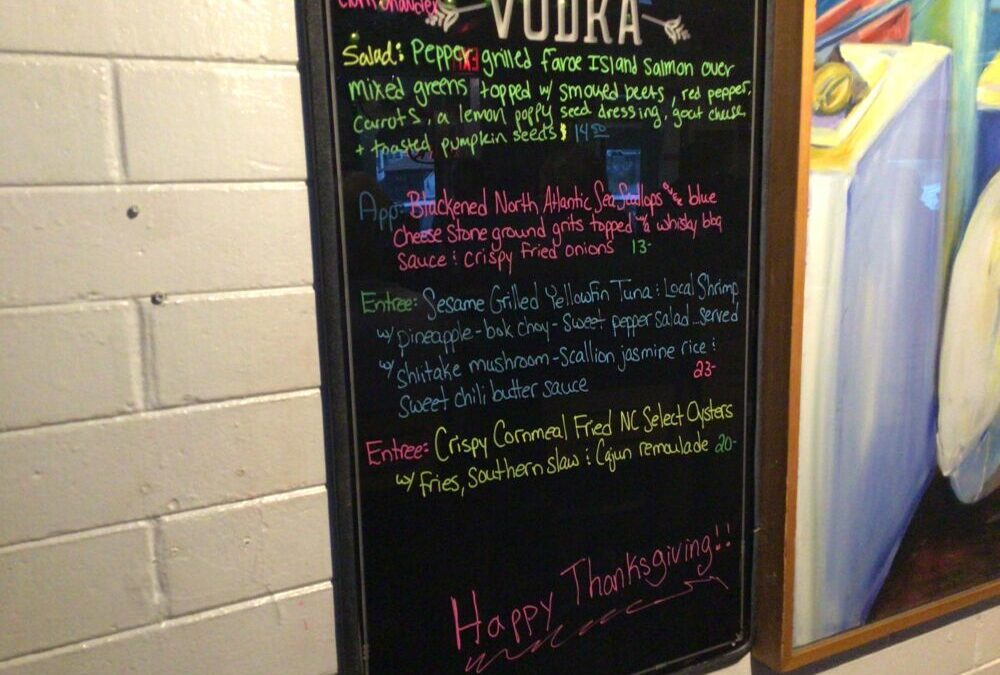 VODKA
Salad: Pepper grilled Faroe Island Salmon over
mixed greens topped w/ smoked beets, red pepper,
carrots, a lemon poppy seed dressing, goat cheese,
+ toasted pumpkin seeds 14.50
App: Blackened North Atlantic Sea Scallops over blue
cheese stone ground grits topped w/ a whisky bbq
sauce & crispy fried onions 13-
Entree: Sesame Grilled Yellowfin Tuna & Local Shrimp
w/ pineapple-bok choy-sweet pepper salad...served
w/ shiitake mushroom-scallion jasmine rice &
sweet chili butter sauce 23-
Entree: Crispy Cornmeal Fried NC Select Oysters
w/ fries, southern slaw & Cajun remoulade 20-
Happy Thanksgiving!!